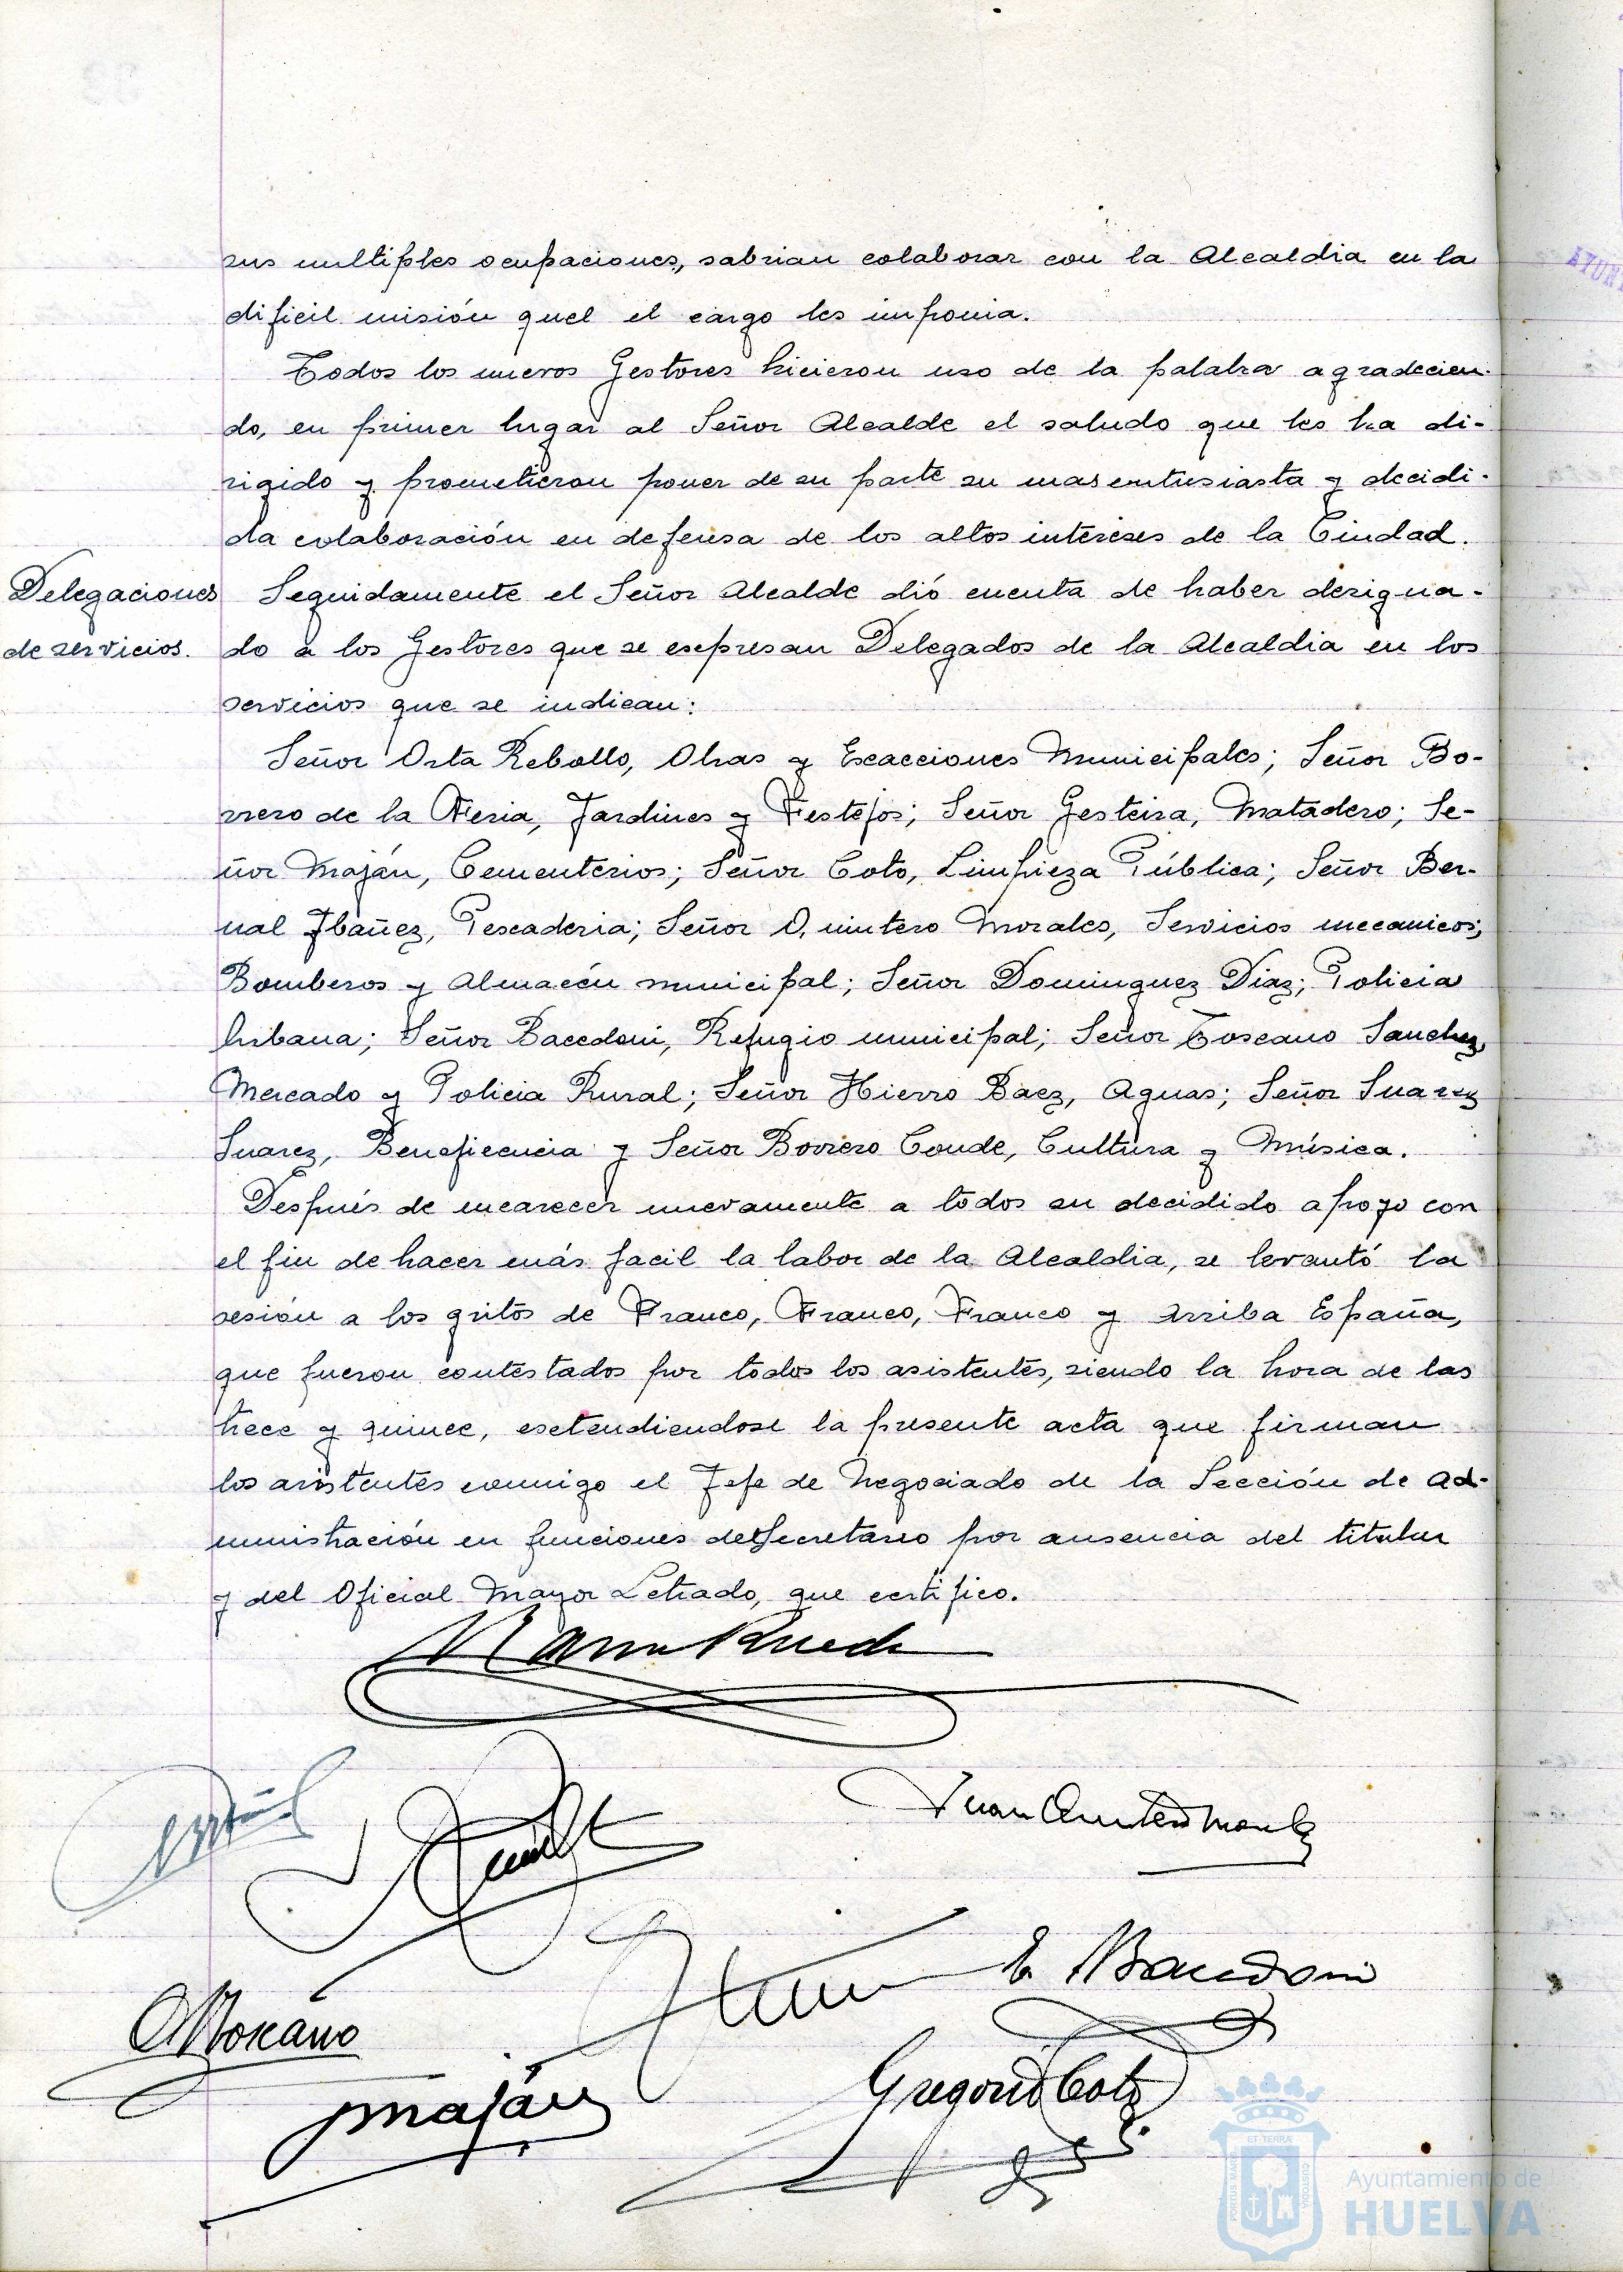 sus multiples ocupaciones, sabrian colaborar con la Alcaldia en la
dificil misión quel el cargo les imponia.
Todos los nuevos Gestores hicieron uso de la palabra agradecien-
do, en primer lugar al Señor Alcalde el saludo que les ha di-
rigido y prometieron poner de su parte su mas entusiasta y decidi-
da colaboración en defensa de los altos intereses de la Ciudad.
Delegaciones
de servicios.
Seguidamente el Señor Alcalde dió cuenta de haber designa-
do a los Gestores que se expresan Delegados de la Alcaldia en los
servicios que se indican:
Señor Orta Rebollo, Obras y Exacciones Municipales; Señor Bo-
rrero de la Feria, Jardines y Festejos; Señor Gesteira, Matadero; Se-
ñor Maján, Cementerios; Señor Coto, Limpieza Pública; Señor Ber-
nal Ibañez, Pescaderia; Señor Quintero Morales, Servicios mecanicos;
Bomberos y Almacén municipal; Señor Dominguez Diaz; Policia
Urbana; Señor Bacedoni, Refugio municipal; Señor Toscano Sanchez,
Mercado y Policia Rural; Señor Hierro Baez, Aguas; Señor Suarez
Suarez, Beneficencia y Señor Borrero Conde, Cultura y Música.
Después de encarecer nuevamente a todos su decidido apoyo con
el fin de hacer más facil la labor de la Alcaldia, se levantó la
sesión a los gritos de Franco, Franco, Franco y Arriba España,
que fueron contestados por todos los asistentes, siendo la hora de las
trece y quince, extendiendose la presente acta que firman
los asistentes conmigo el Jefe de Negociado de la Sección de Ad-
ministración en funciones de Secretario por ausencia del titular
y del Oficial Mayor Letrado, que certifico.
Juan Quintero Morales
E. Bacedoni
Toscano
Maján
Gregorio Coto
ET TERRÆ
PORTUS MARIS
CUSTODIA
Ayuntamiento de
HUELVA